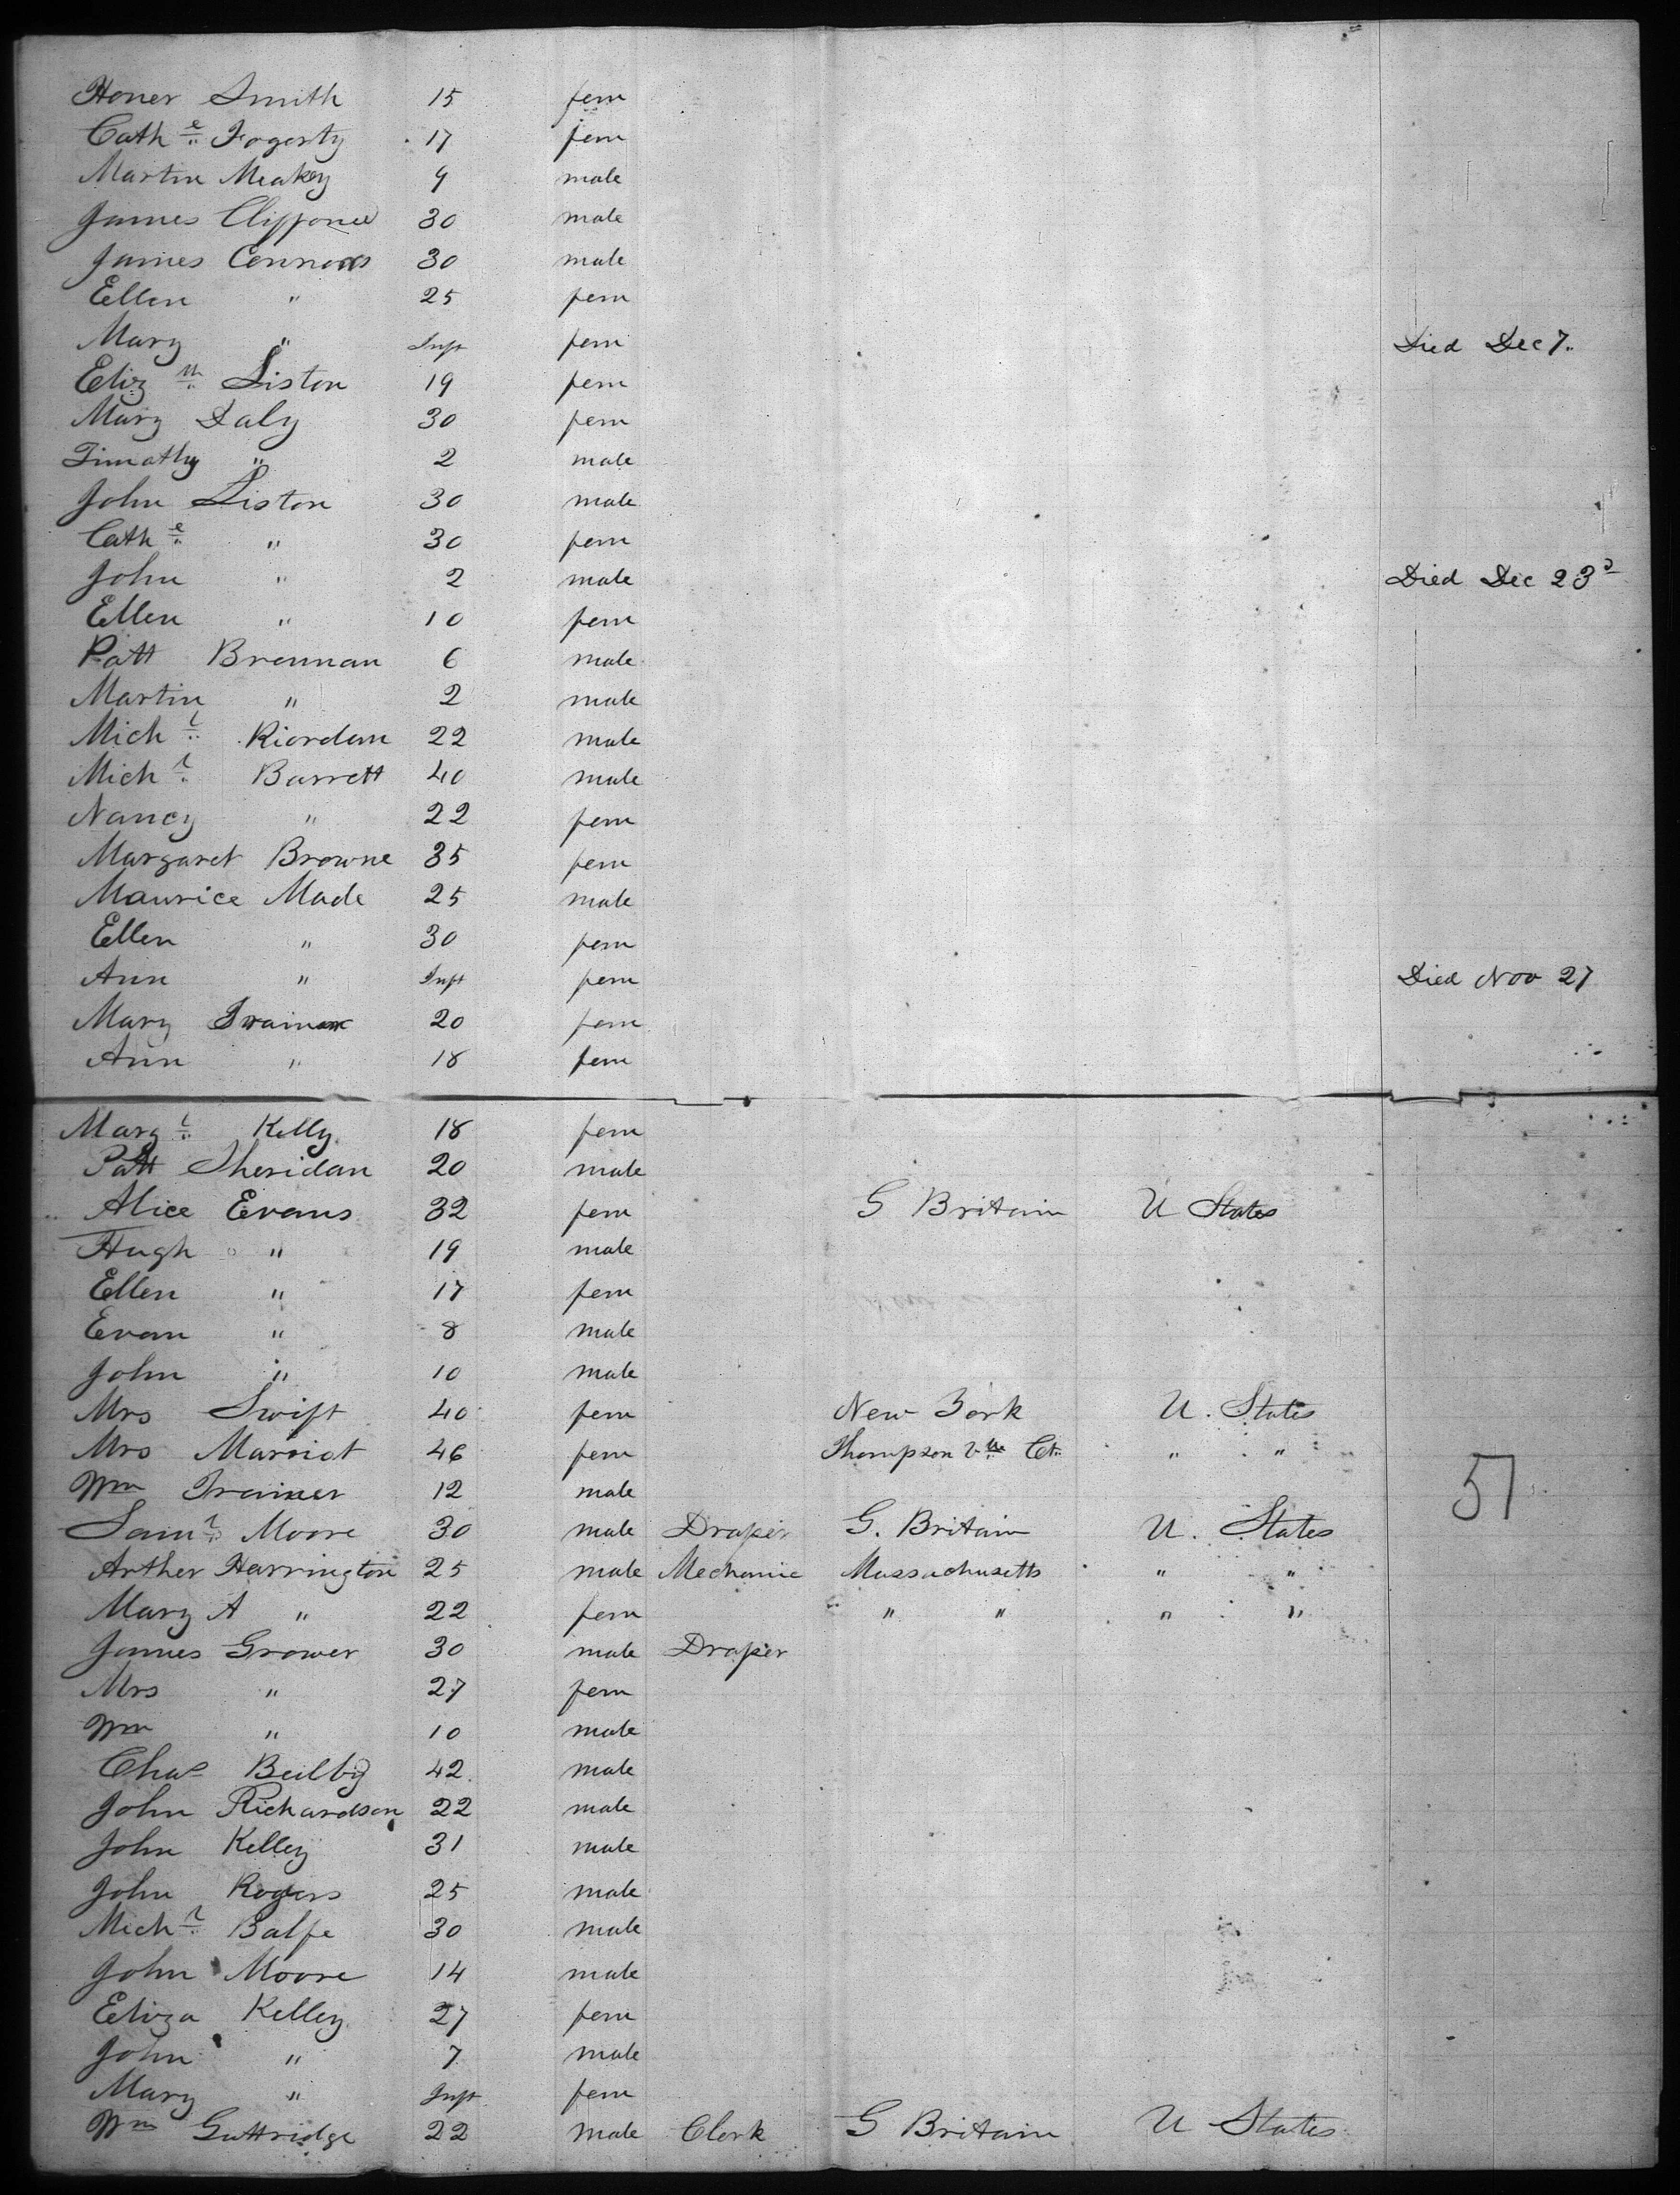 Honer Smith 15 fem
Cathe Fogerty 17 fem
Martin Meakey 9 male
James 30 male
James Connors 30 male
Ellen " 25 fem
Mary " Inft fem Died Dec 7
Elizth Liston 19 fem
Mary Daly 30 fem
Timothy " 2 male
John Liston 30 male
Cathe " 30 fem
John " 2 male Died Dec 23d
Ellen " 10 fem
Patt Brennan 6 male
Martin " 2 male
Michl Riordan 22 male
Michl Barrett 40 male
Nancy " 22 fem
Margaret Browne 35 fem
Maurice Made 25 male
Ellen " 30 fem
Ann " Inft fem Died Nov 27
Mary 20 fem
Ann " 18 fem
Margt Kelly 18 fem
Patt Sheridan 20 male
Alice Evans 32 fem G Britain U States
Hugh " 19 male
Ellen " 17 fem
Evan " 8 male
John " 10 male
Mrs Swift 40 fem New York U. States
Mrs Marriot 46 fem Thompson Vlle Ct. " "
Wm Trainer 12 male
51
Saml Moore 30 male Draper G. Britain U. States
Arther Harrington 25 male Mechanic Massachusetts " "
Mary A " 22 fem " " " "
James Grower 30 male Draper
Mrs " 27 fem
Wm " 10 male
Chas Beilby 42 male
John Richardson 22 male
John Kelley 31 male
John Rogers 25 male
Michl Balfe 30 male
John Moore 14 male
Eliza Kelley 27 fem
John " 7 male
Mary " Inft fem
Wm Guttridge 22 male Clerk G Britain U States